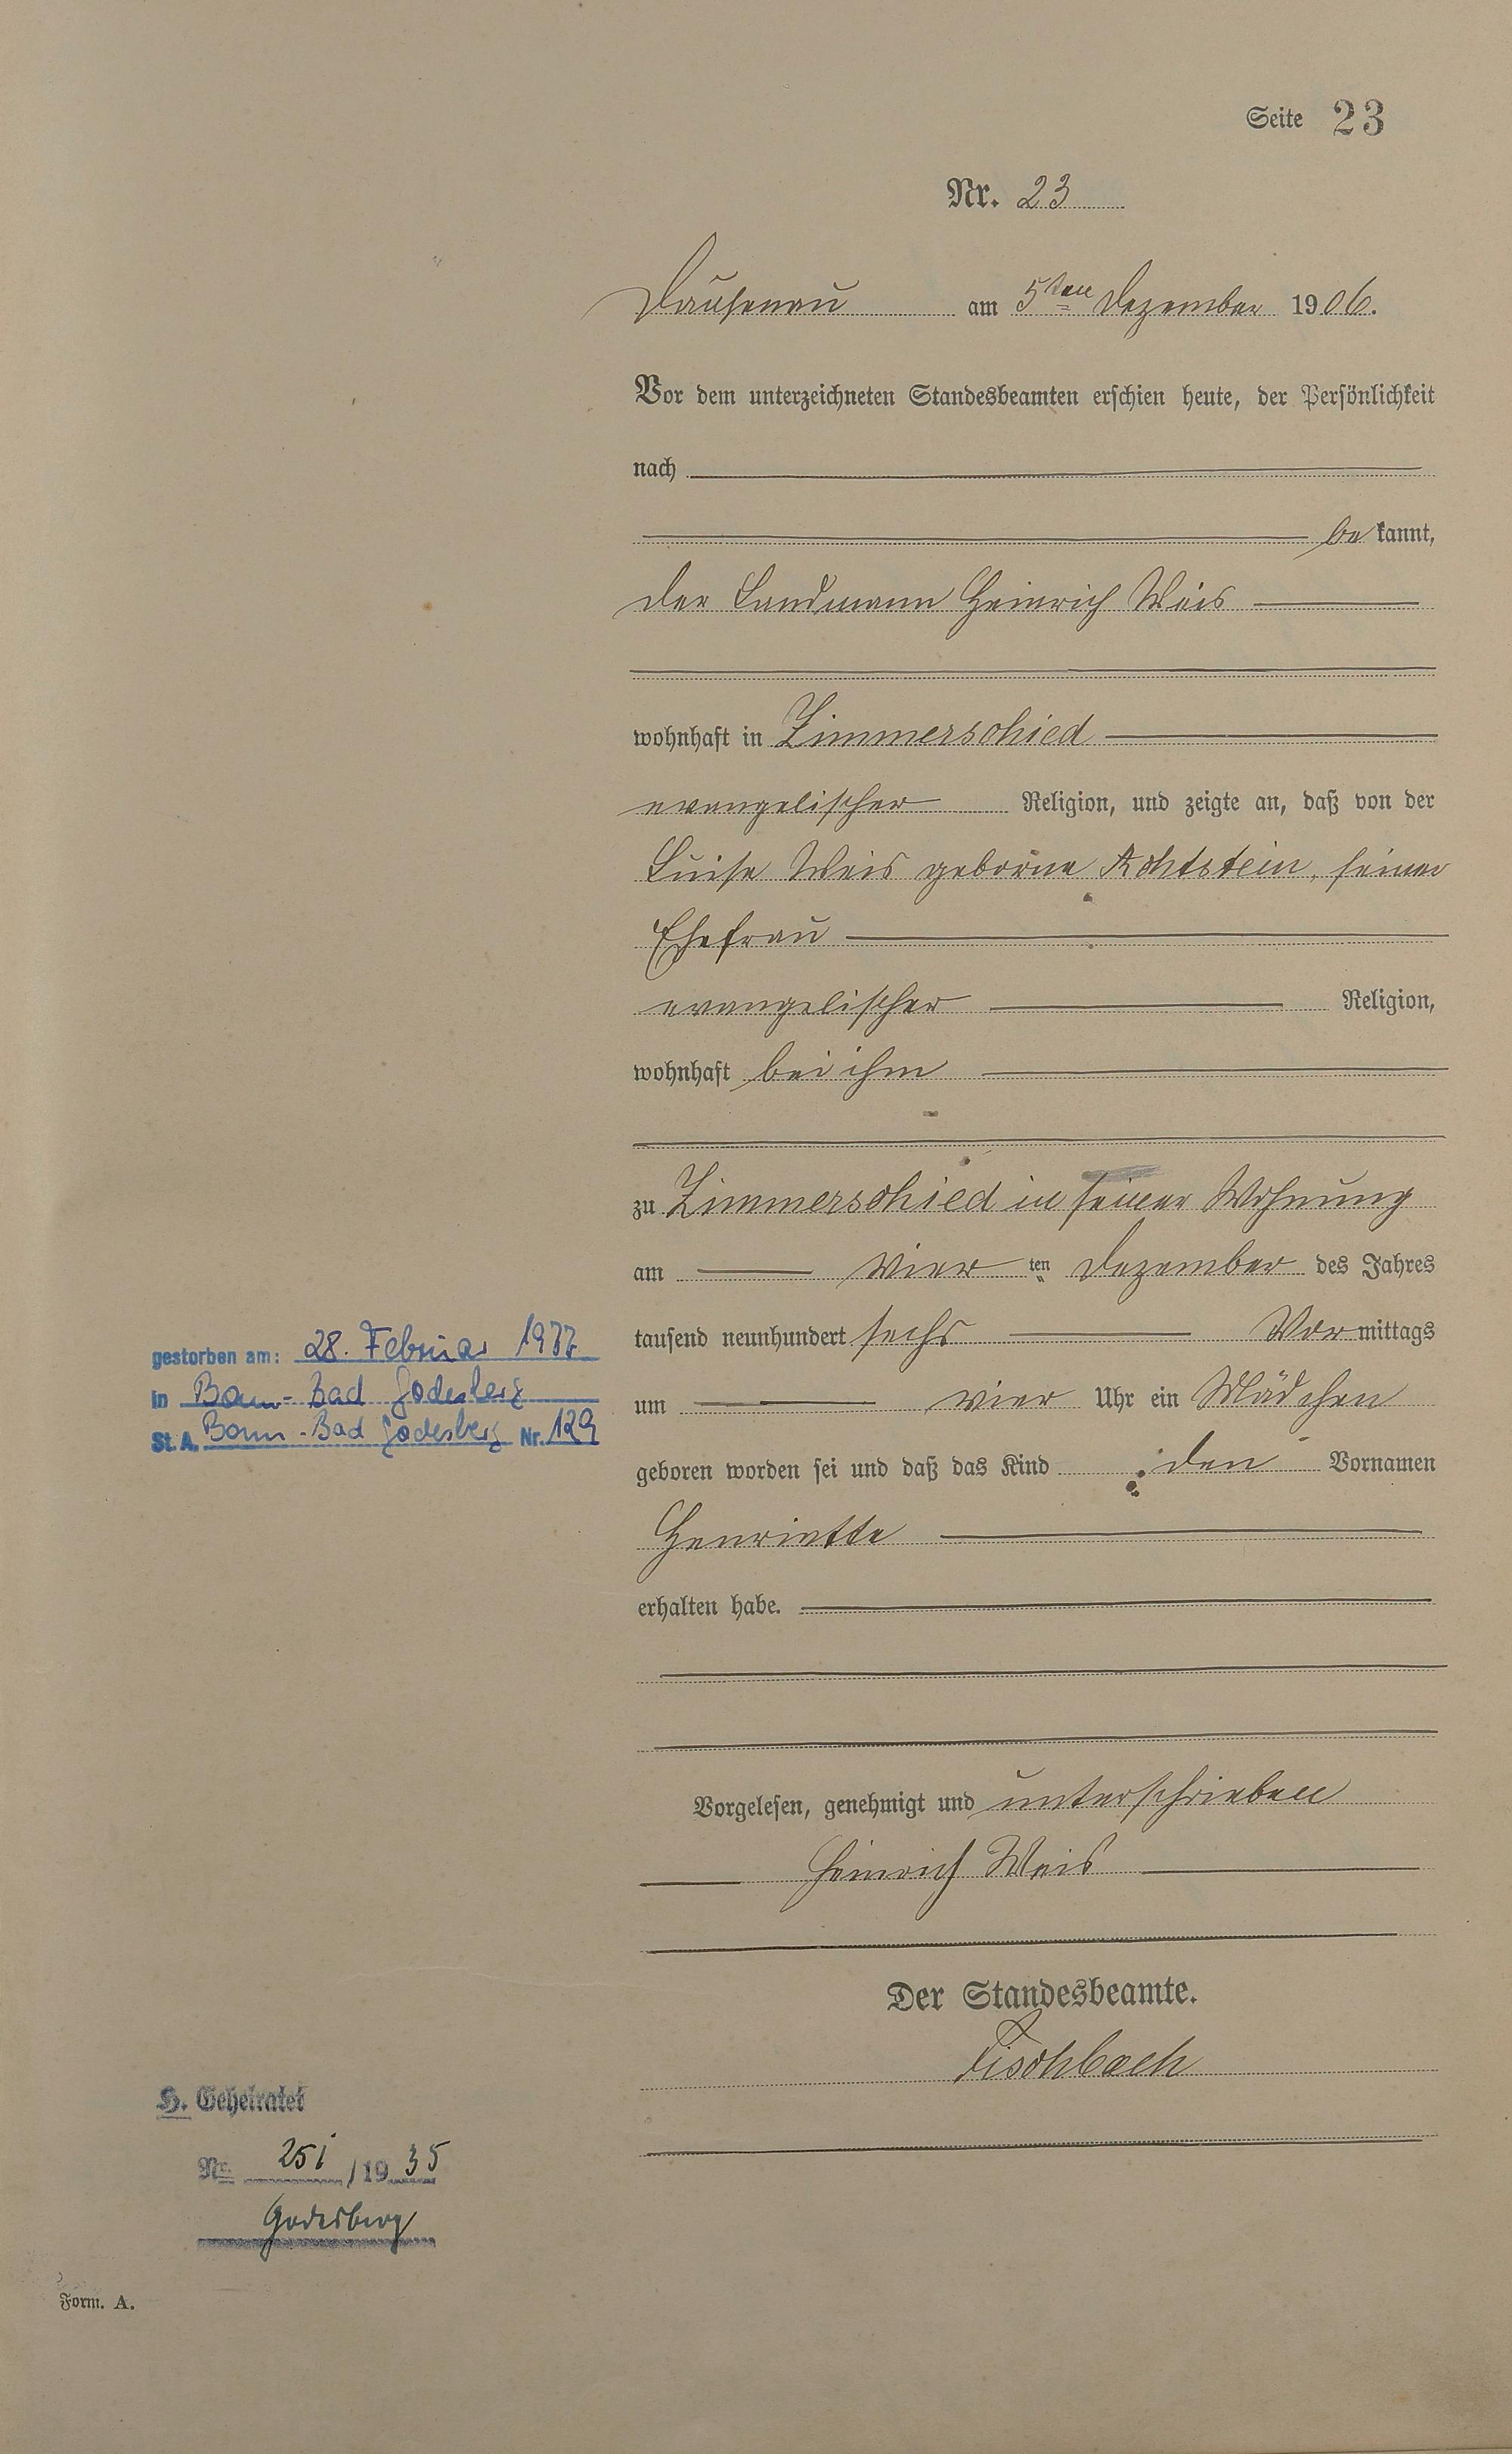 Seite 23
Nr. 23
Dausenau am 5ten Dezember 1906.
Vor dem unterzeichneten Standesbeamten erschien heute, der Persönlichkeit
nach
be kannt,
der Landmann Heinrich Weis
wohnhaft in Zimmerschied
evangelischer Religion, und zeigte an, daß von der
Luise Weis geborne Achtstein, seiner
Ehefrau
evangelischer Religion,
wohnhaft bei ihm
zu Zimmerschied in seiner Wohnung
am vier ten Dezember des Jahres
tausend neunhundert sechs Vor mittags
um vier Uhr ein Mädchen
geboren worden sei und daß das Kind den Vornamen
Henriette
erhalten habe.
Vorgelesen, genehmigt und unterschrieben
Heinrich Weis
Der Standesbeamte.
Fischbach
gestorben am: 28. Februar 1977
in Bonn-Bad Godesberg
St. A. Bonn-Bad Godesberg Nr. 129
H. Geheiratet
Nr. 251 / 19 35
Godesberg
Form. A.